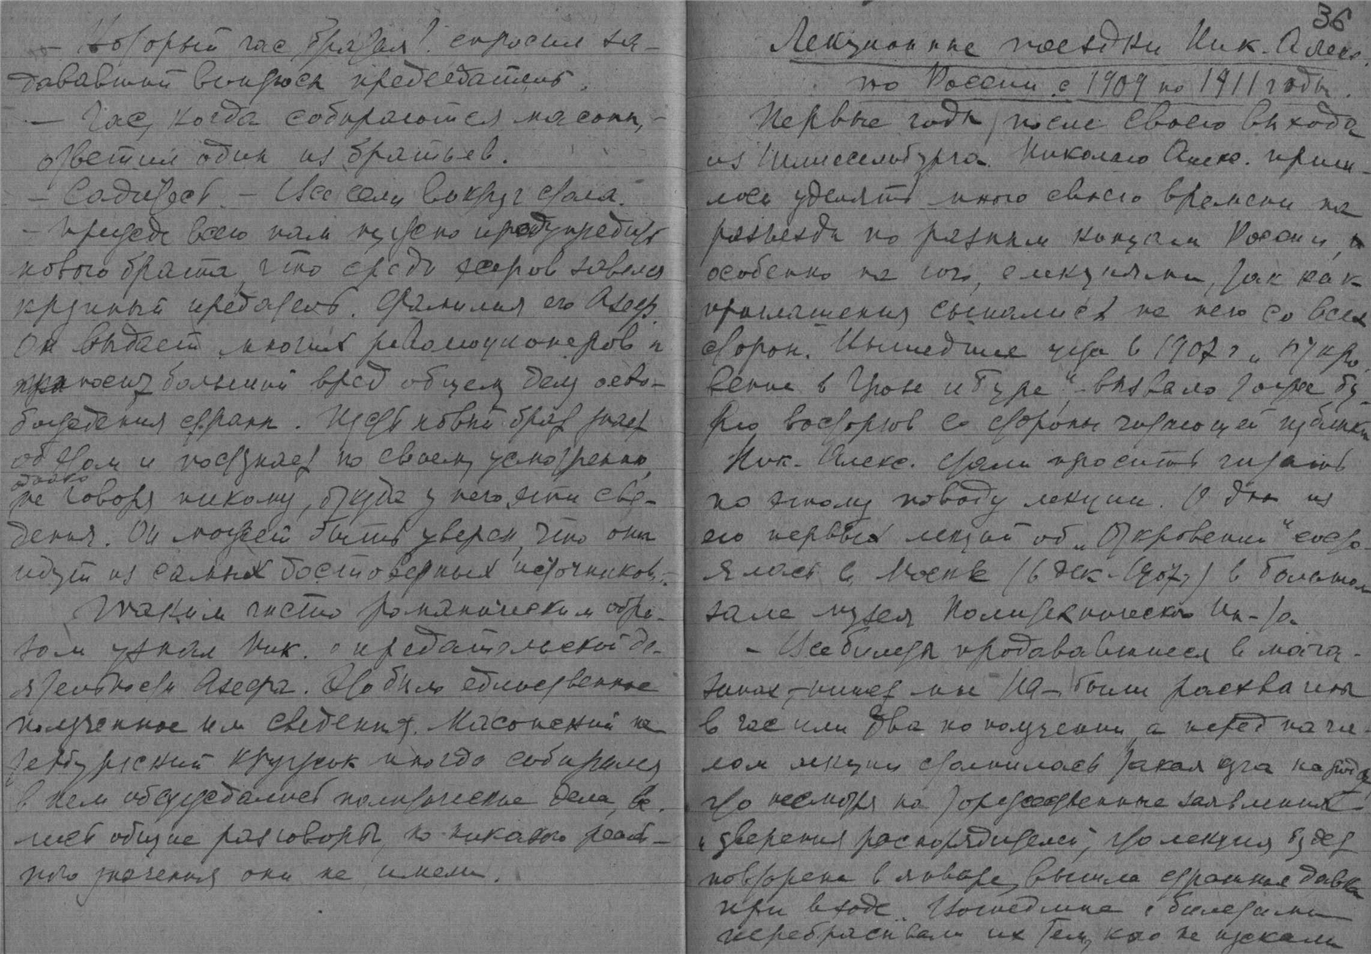 — Который час братья? спросил за-
дававший вопросы председатель.
— Час, когда собираются масоны, —
ответил один из братьев.
— Садитесь. — Все сели вокруг стола.
— Прежде всего нам нужно предупредить
нового брата, что среди эсеров завелся
крупный предатель. Фамилия его Азеф.
Он выдает многих революционеров и
приносит большой вред общему делу осво-
бождения страны. Пусть новый брат знает
об этом и поступает по своему усмотрению,
только
не говоря никому, откуда у него эти све-
дения. Он может быть уверен, что они
идут из самых достоверных источников.
Таким чисто романическим обра-
зом узнал Ник. о предательской де-
ятельности Азефа. Это было единственное
полученное им сведение. Масонский пе-
тербургский кружок иногда собирался
в нем обсуждались политические дела, ве-
лись общие разговоры, но никакого реаль-
ного значения они не имели.
36
Лекционные поездки Ник. Алекс.
по России с 1909 по 1911 годы.
Первые годы после своего выхода
из Шлиссельбурга Николаю Алекс. приш-
лось уделять много своего времени на
разъезды по разным концам России, и
особенно на юго, с лекциями, так как
приглашения сыпались на него со всех
сторон. Вышедшее в 1907 г. „Откро-
вение в Грозе и Буре“, вызвало тогда бу-
рю восторгов со стороны читающей публики
Ник. Алекс. стали просить читать
по этому поводу лекции. Одна из
его первых лекций об „Откровении“ состо-
ялась в Москве (6 дек. 1907 г) в большом
зале музея Политехнического Ин-та.
— Все билеты продававшиеся в мага-
зинах, — пишет мне НА — были расхватаны
в час или два по получении, а перед нача-
лом лекции столпилась такая куча народа
что несмотря на торжественные заявления и
уверения распорядителей, что лекция будет
повторена в январе, вышла страшная давка
при входе. Вошедшие с билетами
перебрасывали их тем, кого не пускали